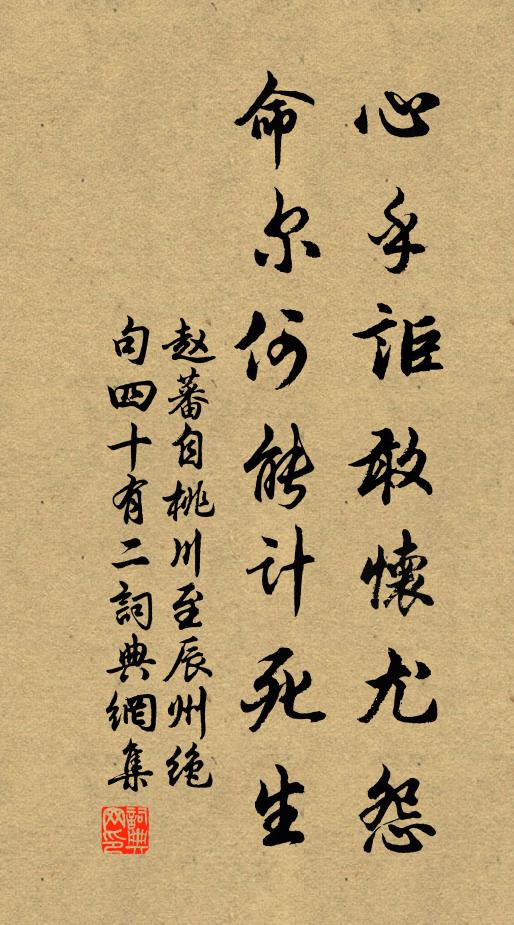 心乎詎敢懷尤怨
命尔何能計死生
赵蕃自桃川至辰州绝
句四十有二詞典網集
詞典
网印